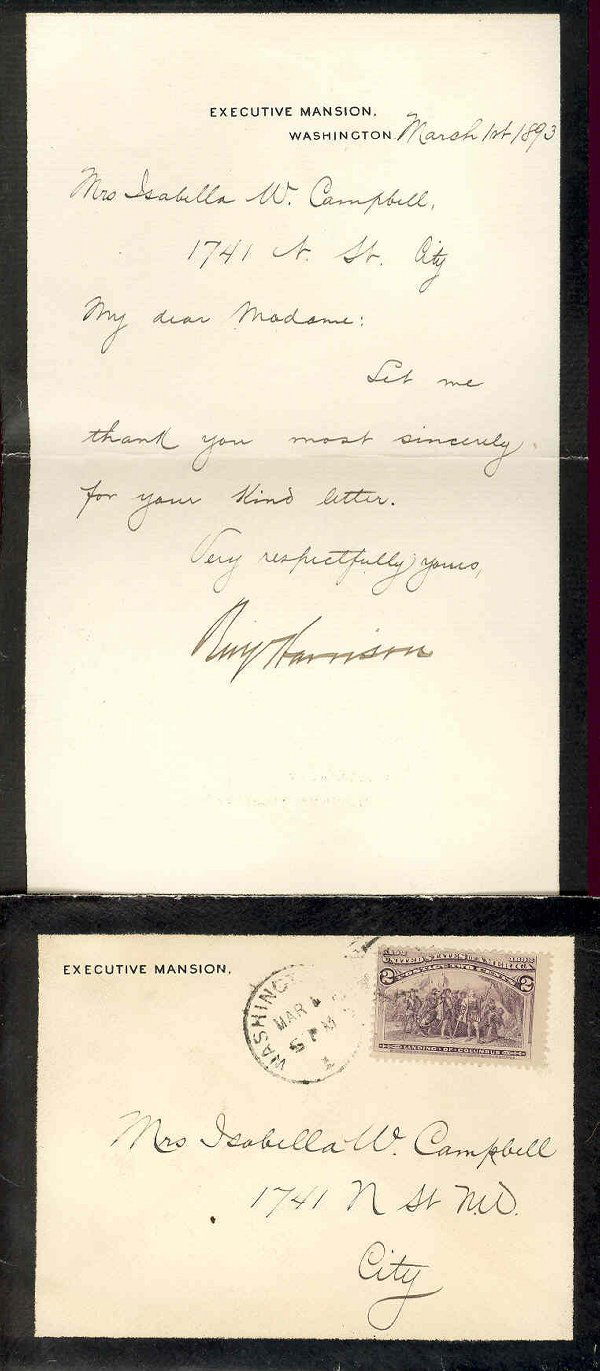 EXECUTIVE MANSION,
WASHINGTON March 1st 1893
Mrs Isabella W. Campbell,
1741 N. St. City
My dear Madame:
Let me
thank you most sincerely
for your kind letter.
Very respectfully yours,
Benj Harrison
EXECUTIVE MANSION.
WASHINGTON
MAR
5 PM
1492 1892
UNITED STATES OF AMERICA
POSTAGE TWO CENTS
2 2
LANDING OF COLUMBUS
Mrs Isabella W. Campbell
1741 N St N.W.
City